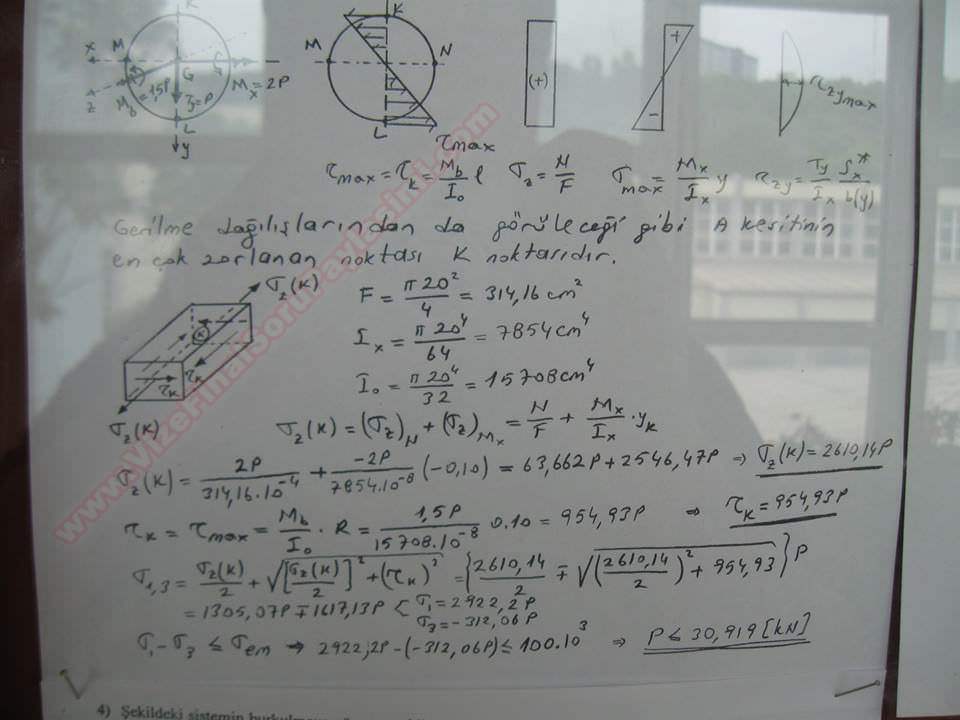 K
x M G Mx=2P
z Mb=1,5P Ty=P
L
y
K
M N
L
τmax
(+)
+
-
τzymax
τmax = τk = Mb/I₀ ℓ σz = N/F σmax = Mx/Ix y τzy = Ty/Ix Sx*/b(y)
Gerilme dağılışlarından da görüleceği gibi A kesitinin
en çok zorlanan noktası K noktasıdır.
σz(K)
F = π20²/4 = 314,16 cm²
K
Ix = π20⁴/64 = 7854 cm⁴
τk τk
I₀ = π20⁴/32 = 15708 cm⁴
σz(K)
σz(K) = (σz)N + (σz)Mx = N/F + Mx/Ix · yK
σz(K) = 2P/314,16.10⁻⁴ + -2P/7854.10⁻⁸ (-0,10) = 63,662P + 2546,47P ⇒ σz(K) = 2610,14P
τk = τmax = Mb/I₀ · R = 1,5P/15708.10⁻⁸ 0.10 = 954,93P ⇒ τk = 954,93P
σ1,3 = σz(K)/2 ∓ √[σz(K)/2]² + (τk)² = {2610,14/2 ∓ √(2610,14/2)² + 954,93} P
= 1305,07P ∓ 1617,13P < σ1 = 2922,2P
σ3 = -312,06P
σ1 - σ3 ≤ σem → 2922,2P - (-312,06P) ≤ 100.10³ ⇒ P ≤ 30,919 [kN]
4) Şekildeki sistemin
www.VizeFinalSoruPaylasimi.com